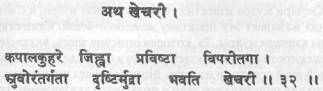 अथ खेचरी ।
कपालकुहरे जिह्वा प्रविष्टा विपरीतगा ।
भ्रुवोरंतर्गता दृष्टिर्मुद्रा भवति खेचरी ॥ ३२ ॥